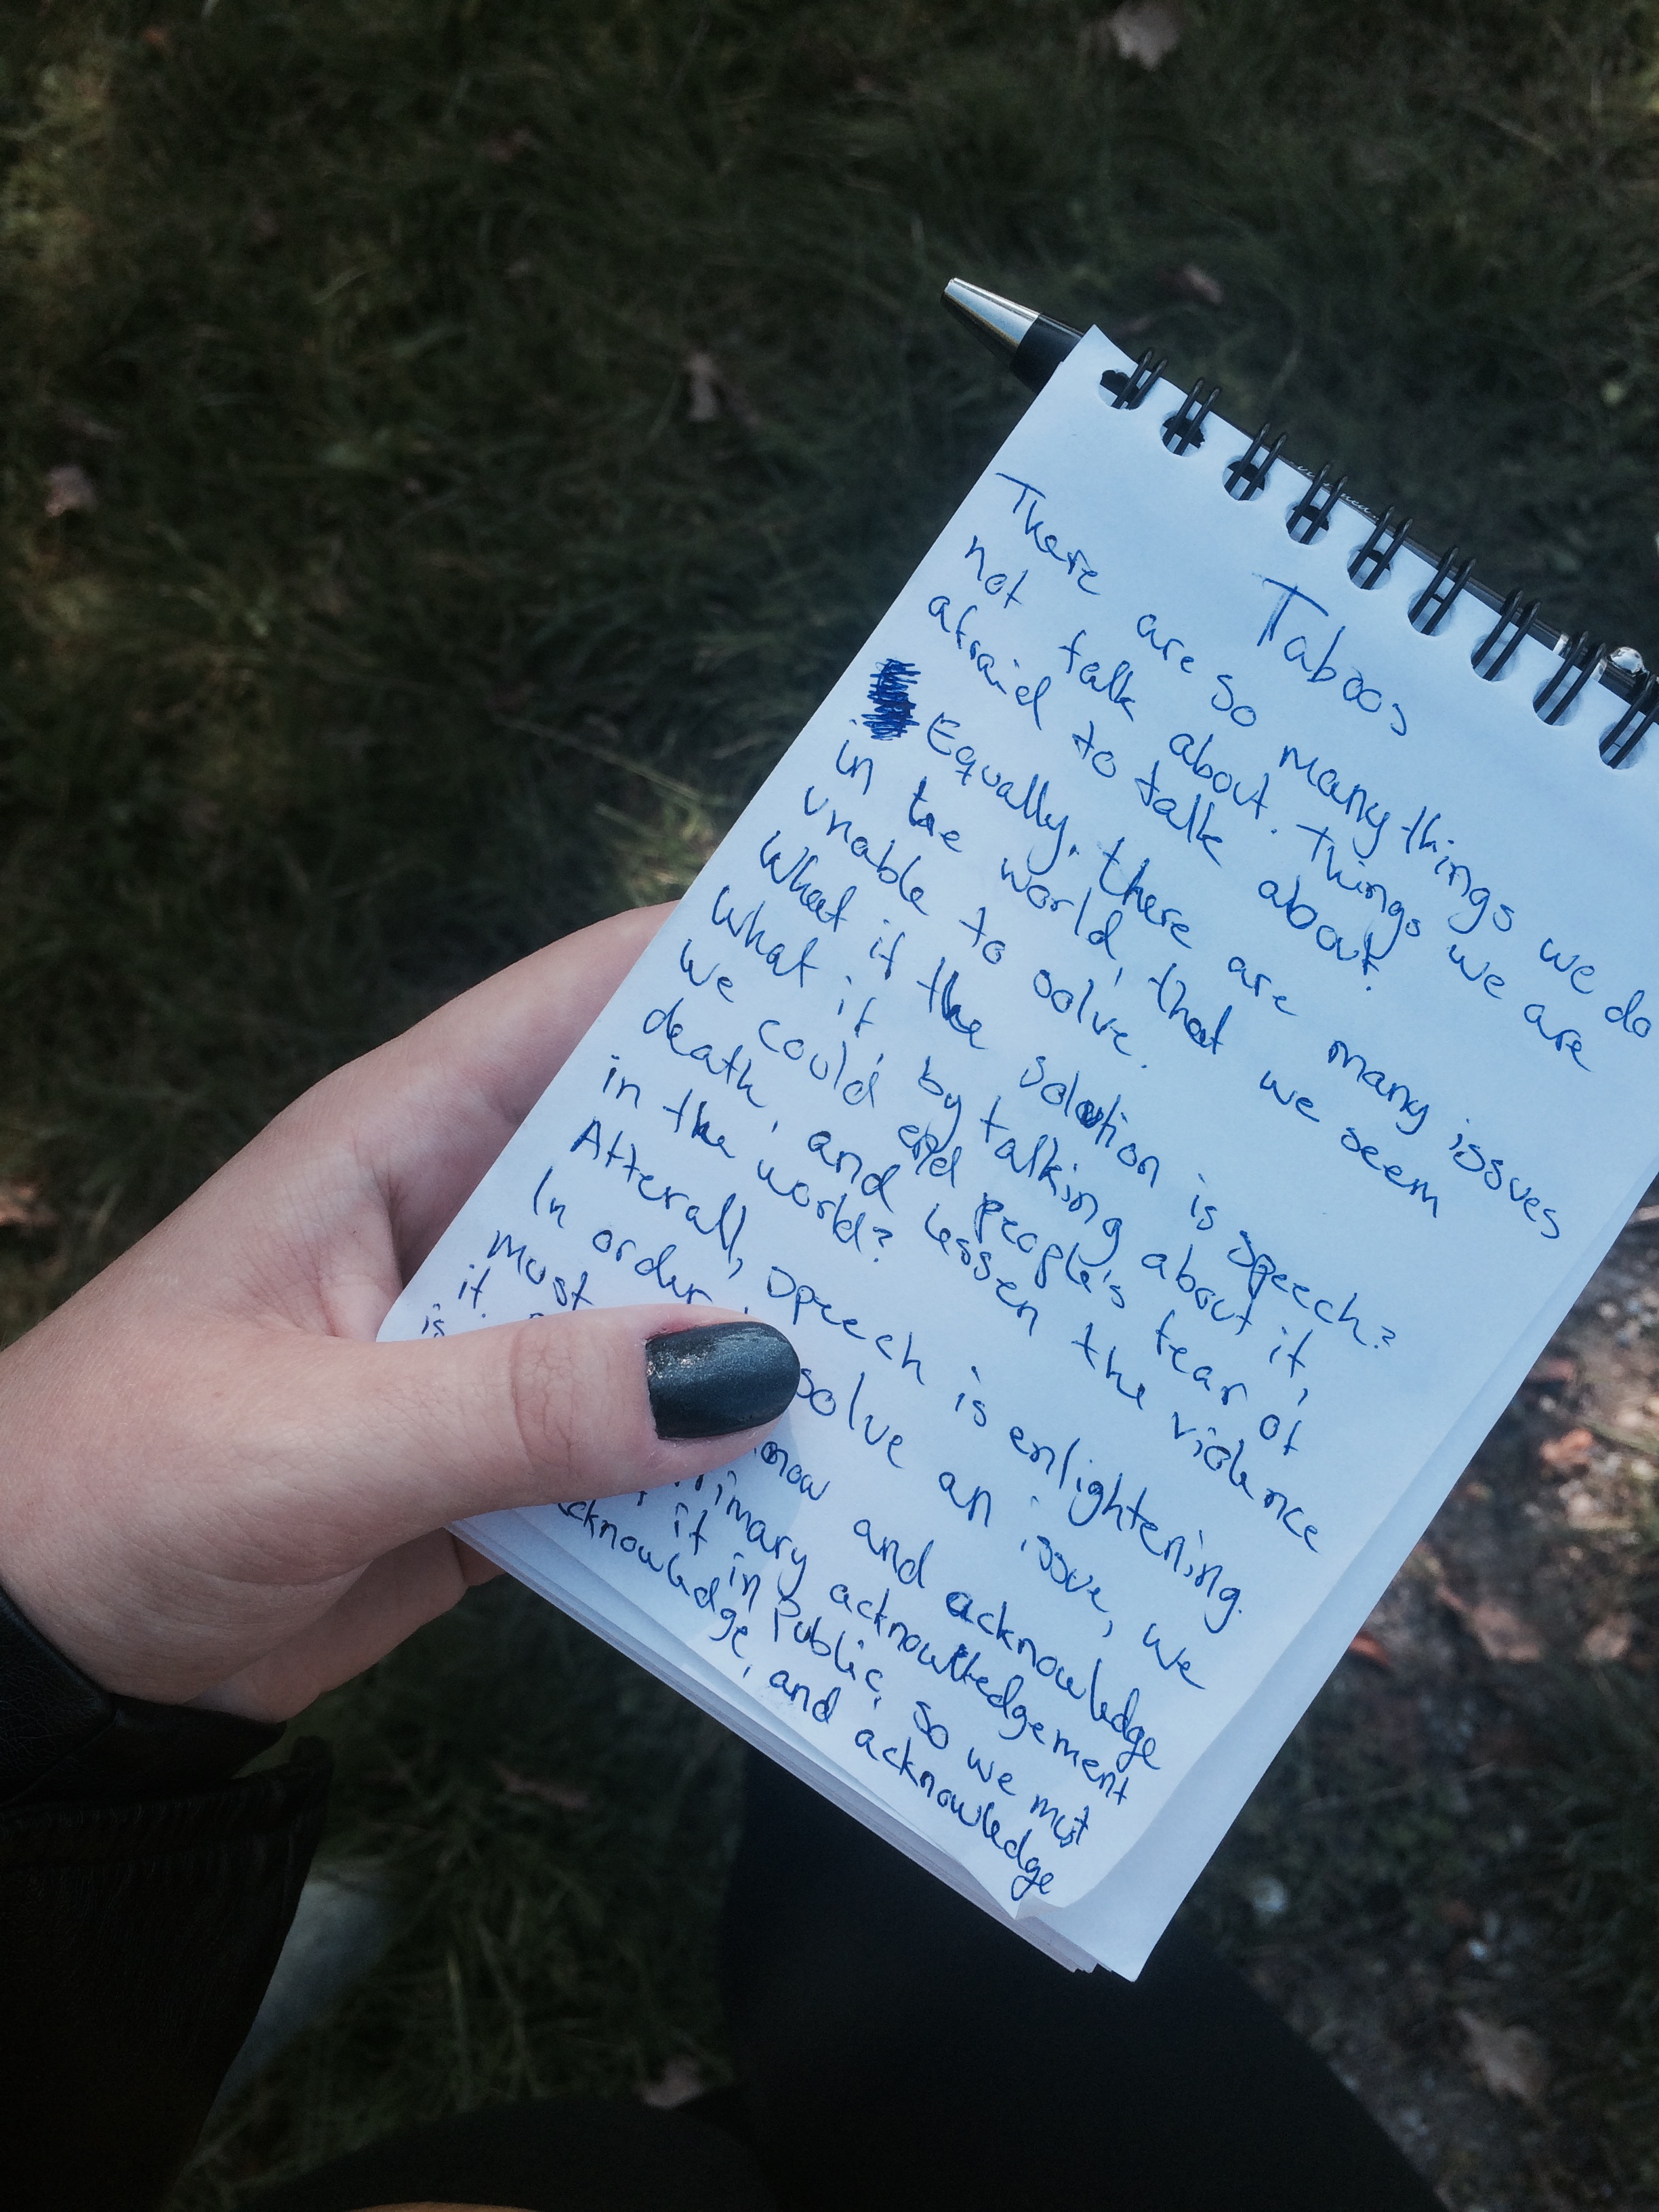 Taboos
There are so many things we do
not talk about. Things we are
afraid to talk about.
Equally, there are many issues
in the world, that we seem
unable to solve.
What if the solution is speech?
What if, by talking about it,
we could end people's fear of
death, and lessen the violence
in the world?
Afterall, speech is enlightening.
In order solve an issue, we
must and acknowledge
it. primary acknowledgement
is it in Public, so we must
acknowledge, and acknowledge